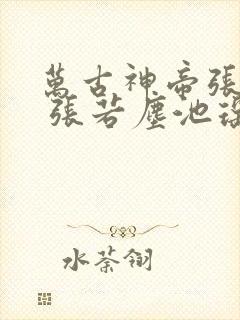 萬古神帝張
張若塵池
水荼翎